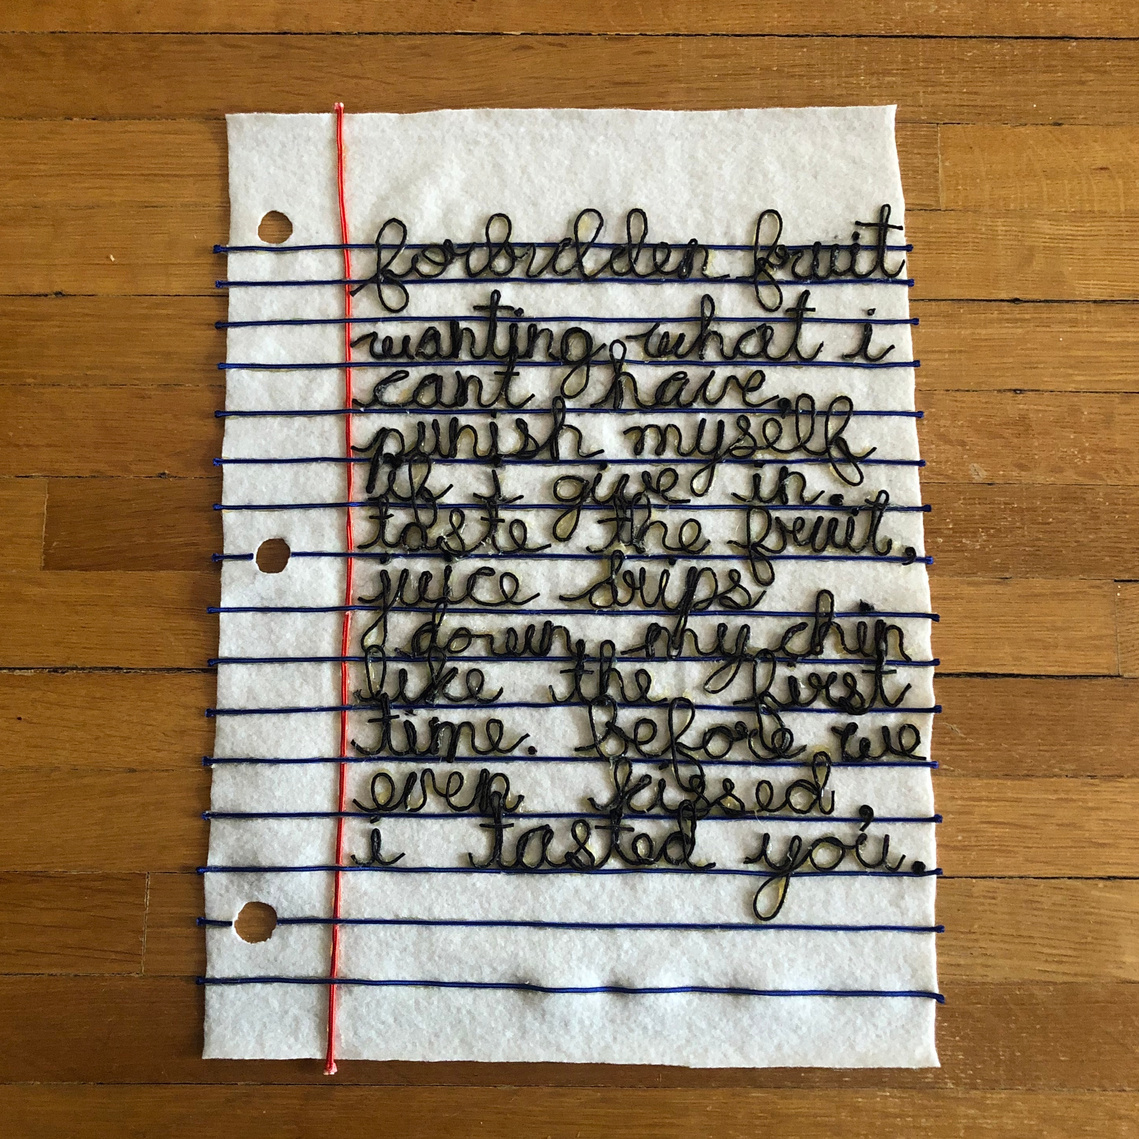 forbidden fruit
wanting what i
cant have
punish myself
if i give in.
taste the fruit,
juice drips
down my chin
like the first
time. Before we
even kissed,
i tasted you.